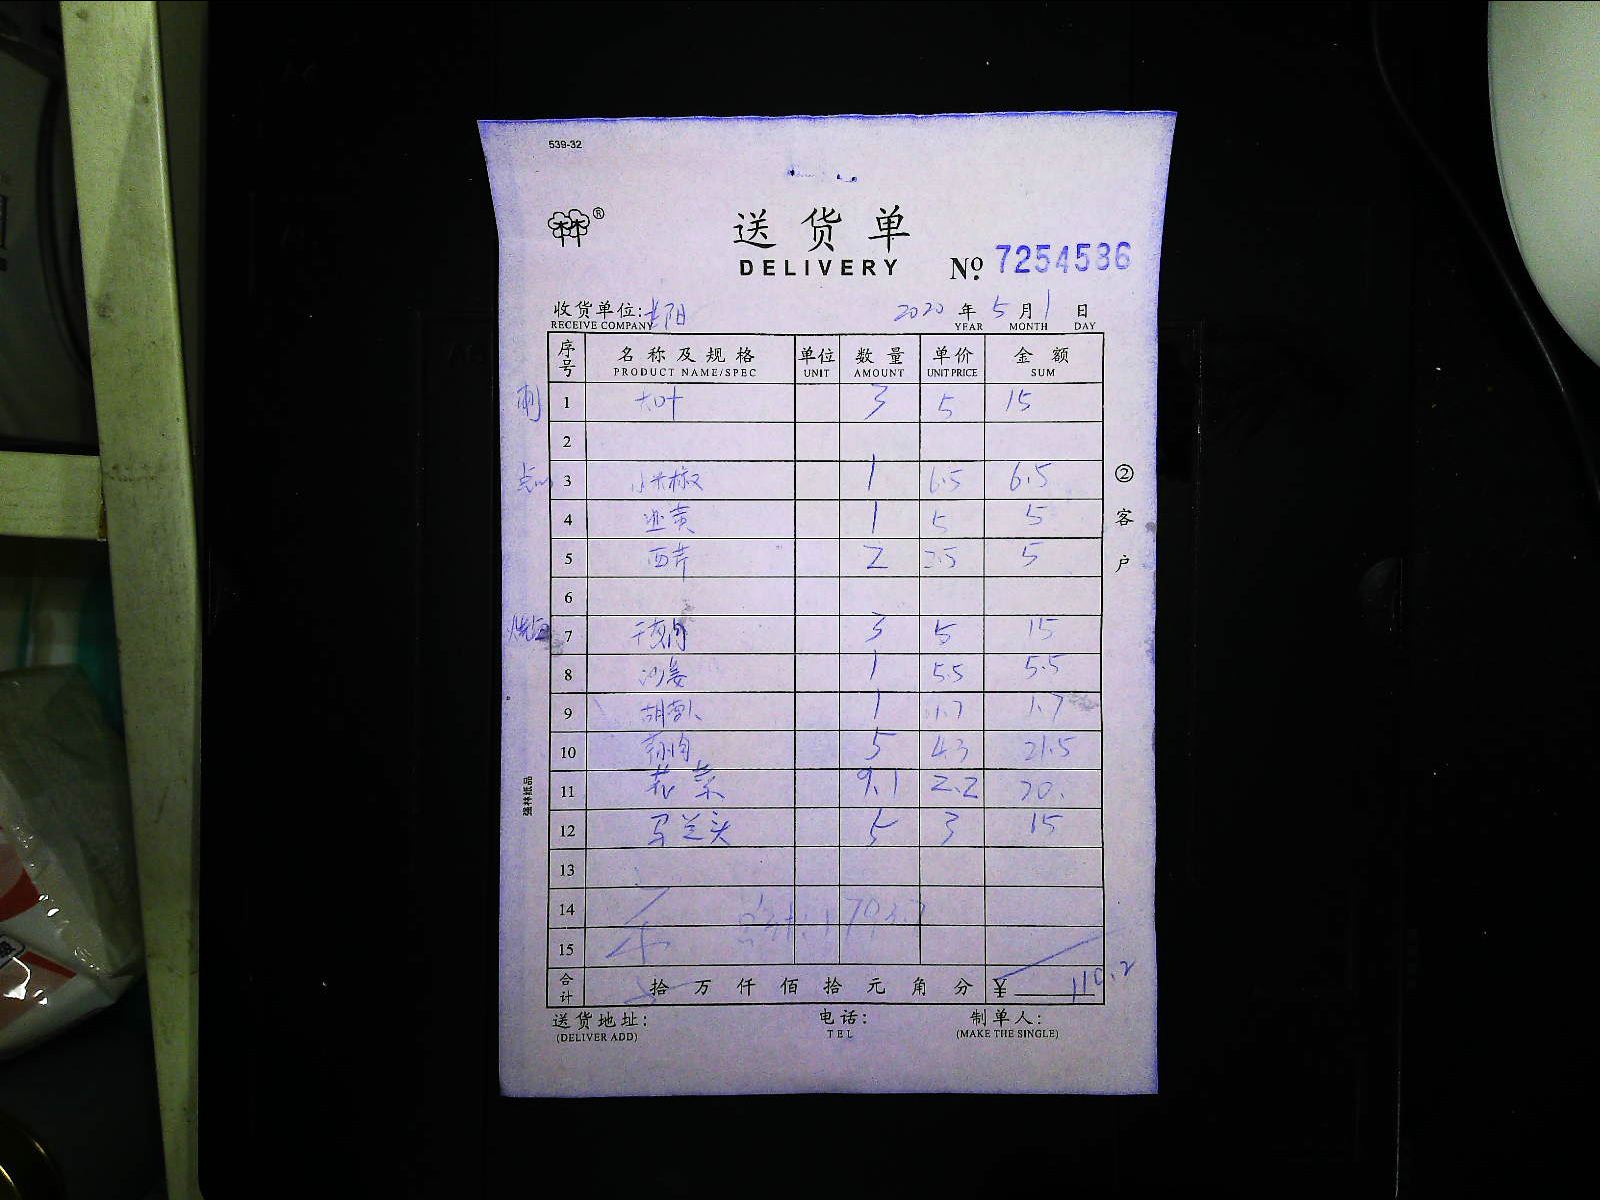 539-32
送货单
DELIVERY
No 7254536
收货单位: 长阳 2020 年 5 月 1 日
RECEIVE COMPANY YEAR MONTH DAY
序号 名称及规格 单位 数量 单价 金额
PRODUCT NAME/SPEC UNIT AMOUNT UNIT PRICE SUM
刺 1 大叶 3 5 15
2
点心 3 小米椒 1 6.5 6.5
4 韭黄 1 5 5
5 西芹 2 2.5 5
6
烧 7 3 5 15
8 沙姜 1 5.5 5.5
9 胡萝卜 1 1.7 1.7
10 5 4.3 21.5
11 花菜 9.1 2.2 20.
12 马兰头 5 3 15
13
14
15
合计 拾万仟佰拾元角分 ¥ 110.2
送货地址: 电话: 制单人:
(DELIVER ADD) TEL (MAKE THE SINGLE)
②客户
强林纸品